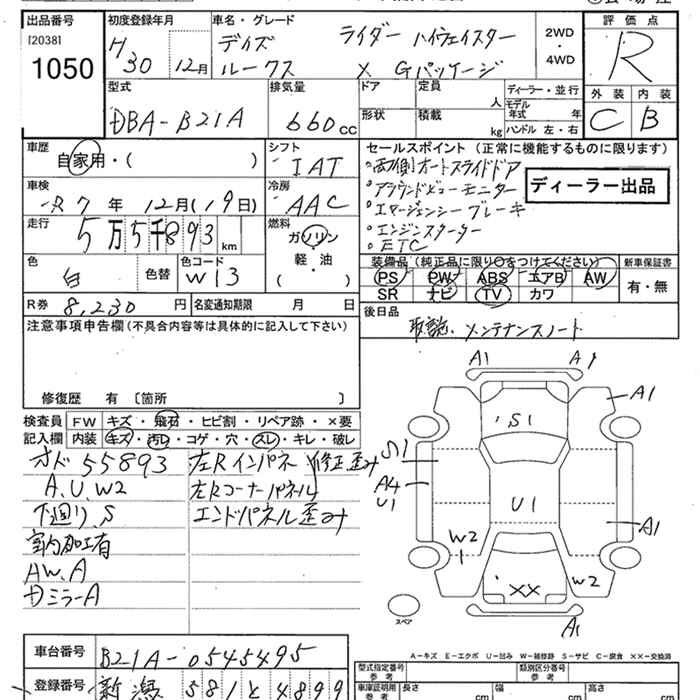 出品番号 初度登録年月 車名・グレード 評価点
[2038]
1050
H30 12月
デイズ ライダー ハイウェイスター
ルークス X Gパッケージ
2WD・4WD
R
型式 排気量 ドア 定員 人 ディーラー・並行
DBA-B21A 660cc
形状 積載 kg モデル年式 年 ハンドル 左・右
外装 内装
C B
車歴 自家用・( )
シフト IAT
車検 R7年12月(19日)
冷房 AAC
走行 5万5千893km
燃料 ガソリン・軽・油( )
色 白 色替 色コード W13
R券 8,230円 名変通知期限 月 日
セールスポイント(正常に機能するものに限ります)
・両側オートスライドドア
・アラウンドビューモニター
・エマージェンシーブレーキ
・エンジンスターター
・ETC
ディーラー出品
装備品(純正品に限り○をつけてください) 新車保証書
PS PW ABS エアB AW 有・無
SR ナビ TV カワ
後日品 取説、メンテナンスノート
注意事項申告欄(不具合内容等は具体的に記入して下さい)
修復歴 有 [箇所 ]
検査員 FW キズ・飛石・ヒビ割・リペア跡・×要
記入欄 内装 キズ・汚レ・コゲ・穴・スレ・キレ・破レ
オド 55893
A、U、W2
下廻り、S
室内加工有
AW、A
Dミラー A
左Rインパネ 修正歪み
左Rコーナーパネル
エンドパネル歪み
A1 A1
A1
S1
S1
A4
U1
U1
A1
W2
W2
XX
A1
スペア
A-キズ E-エクボ U-凹み W-補修跡 S-サビ C-腐食 ××-交換済
車台番号 B21A-0545495
登録番号 新潟 581 と 4899
型式指定番号 参考 類別区分番号 参考
車庫証明用 参考 長さ cm 幅 cm 高さ cm